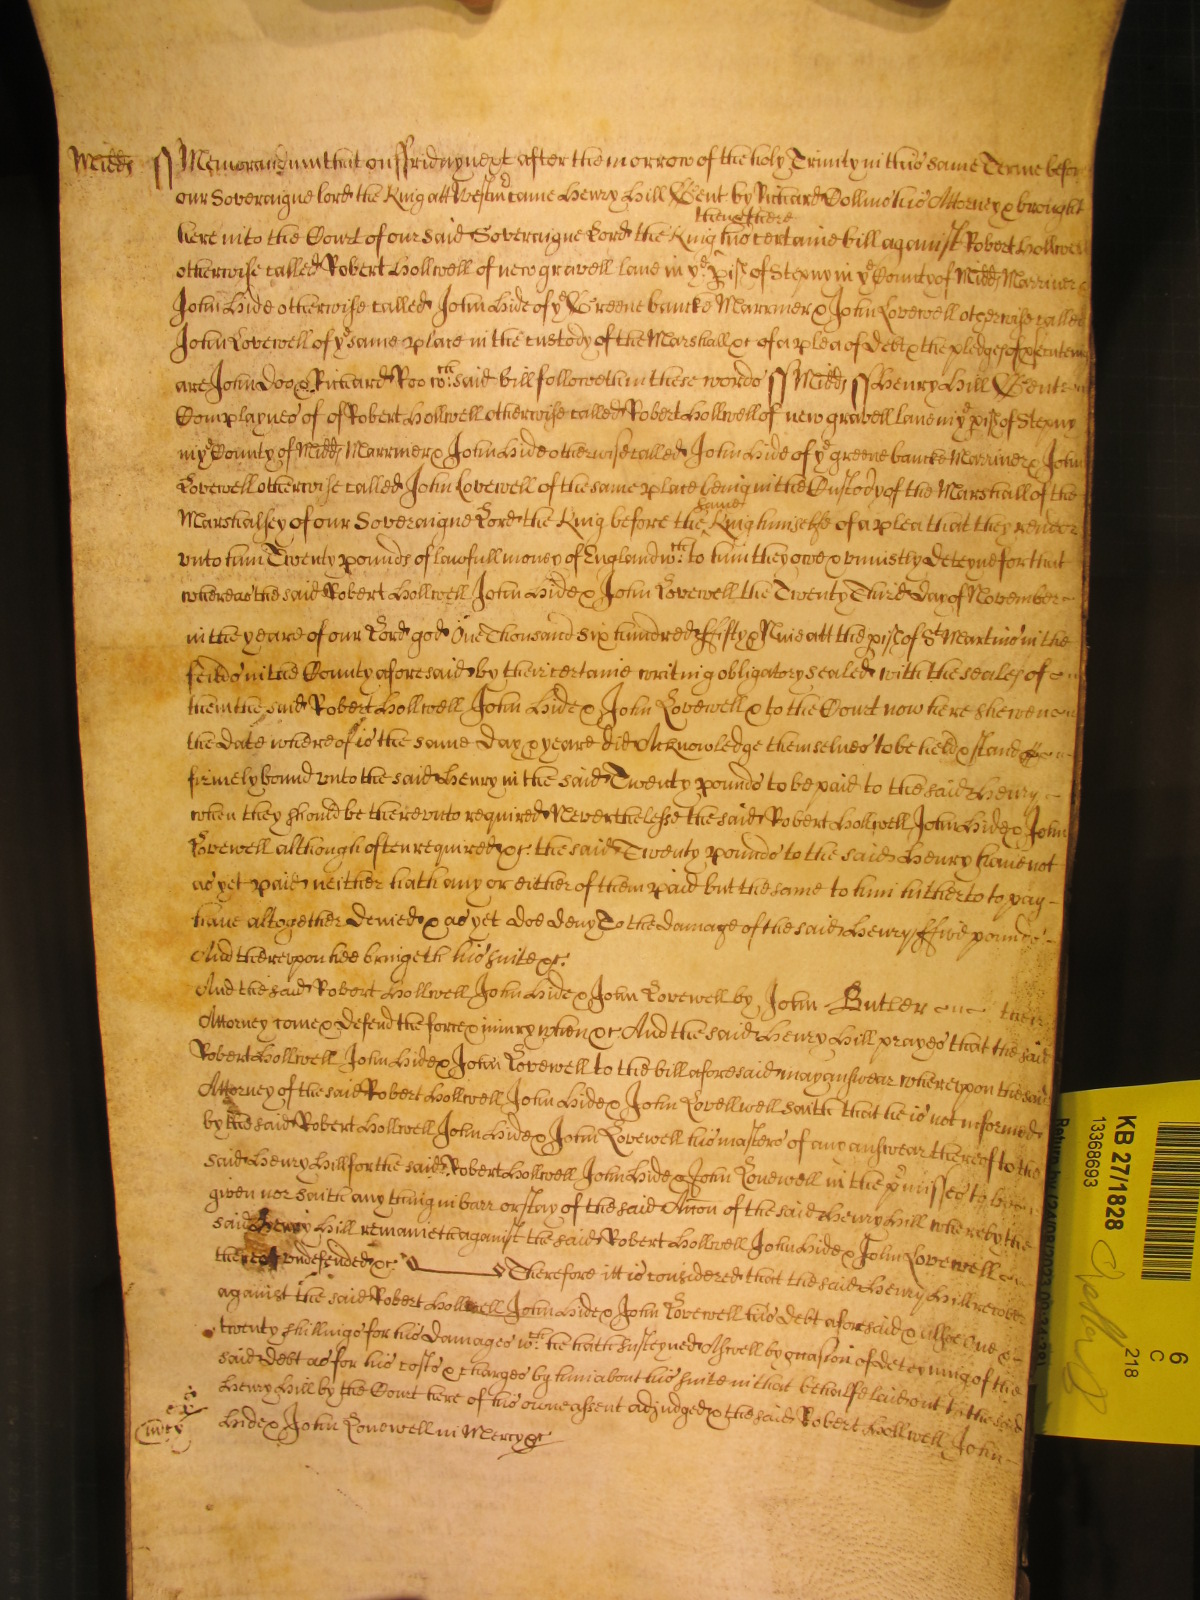 Midds ss Memorandum that on ffriday next after the morrow of the holy Trinity in this same Terme before
our Soveraigne lord the King att Westm came Henry Hill Gent by Richard Collins his Attorney & brought
then & there
here into the Court of our said Soveraigne Lord the King his certaine bill against Robert Hollwell
otherwise called Robert Hollwell of new gravell lane in ye pish of Stepny in ye County of Midds Marriner &
John Hide otherwise called John Hide of ye Greene bancke Marriner & John Lovewell otherwise called
John Lovewell of ye same place in the custody of the Marshall &c of a plea of Debt & the pledges of psecuteing
are John Doo & Richard Roo wch said bill followeth in these words ss Midds ss Henry Hill Gent
Complaynes of of Robert Hollwell otherwise called Robert Hollwell of new gravell lane in ye pish of Stepny
in ye County of Midds Marriner & John Hide otherwise called John Hide of ye greene bancke Marriner & John
Lovewell otherwise called John Lovewell of the same place being in the Custody of the Marshall of the
same
Marshalsey of our Soveraigne Lord the King before the King himselfe of a plea that they render
unto him Twenty pounds of lawfull money of England wch to him they owe & uniustly deteyne for that
whereas the said Robert Hollwell John Hide & John Lovewell the Twenty Third Day of November
in the yeare of our Lord god One Thousand six hundred ffifty & Nine att the pish of St Martins in the
feilds in the County aforesaid by their certaine writing obligatory sealed with the seales of
them the said Robert Hollwell John Hide & John Lovewell & to the Court now here shewen
the Date whereof is the same Day & yeare did Acknowledge themselves to be held & stand
firmely bound unto the said Henry in the said Twenty pounds to be paid to the said Henry
when they should be thereunto required Neverthelesse the said Robert Hollwell John Hide & John
Lovewell although often required &c the said Twenty pounds to the said Henry have not
as yet paid neither hath any or either of them paid but the same to him hitherto to pay
have altogether denied & as yet doe deny To the damage of the said Henry ffive pounds
And thereupon hee bringeth his suite &c
And the said Robert Hollwell John Hide & John Lovewell by John Butler their
Attorney come & defend the force & iniury when &c And the said Henry Hill prayes that the said
Robert Hollwell John Hide & John Lovewell to the bill aforesaid may answear whereupon the said
Attorney of the said Robert Hollwell John Hide & John Lovellwell saith that he is not informed
by the said Robert Hollwell John Hide & John Lovewell his masters of any answear thereof to the
said Henry Hill for the said Robert Hollwell John Hide & John Lovewell in the pmisses to be
given nor saith any thing in barr or stay of the said Accon of the said Henry Hill whereby the
said Henry Hill remaineth against the said Robert Hollwell John Hide & John Lovewell
thereof undefended &c Therefore itt is considered that the said Henry Hill recover
against the said Robert Hollwell John Hide & John Lovewell his Debt aforesaid & alsoe One &
twenty shillings for his Damages wch he hath susteyned Aswell by occasion of deteyning of the
said Debt as for his costs & charges by him about his suite in that behalfe laid out to the said
Henry Hill by the Court here of his owne assent adjudged & the said Robert Hollwell John
mcy Hide & John Lovewell in Mercy &c
KB 27/1828
13368693
218
C
6